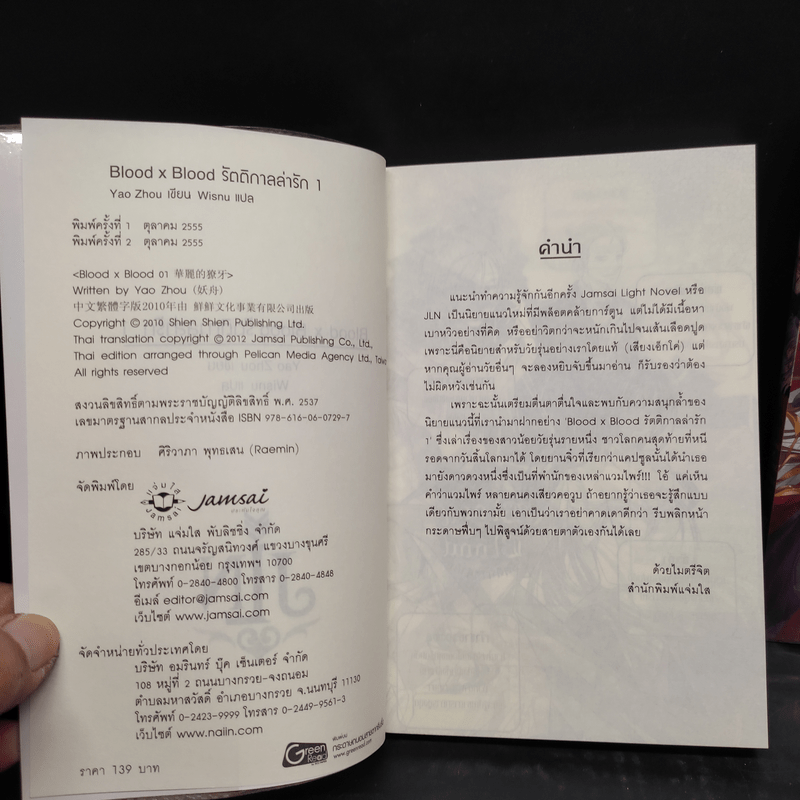 Blood x Blood รัตติกาลล่ารัก 1
Yao Zhou เขียน Wisnu แปล
พิมพ์ครั้งที่ 1 ตุลาคม 2555
พิมพ์ครั้งที่ 2 ตุลาคม 2555
<Blood x Blood 01 華麗的獠牙>
Written by Yao Zhou (妖舟)
中文繁體字版2010年由 鮮鮮文化事業有限公司出版
Copyright © 2010 Shien Shien Publishing Ltd.
Thai translation copyright © 2012 Jamsai Publishing Co., Ltd.
Thai edition arranged through Pelican Media Agency Ltd.,
All rights reserved
สงวนลิขสิทธิ์ตามพระราชบัญญัติลิขสิทธิ์ พ.ศ. 2537
เลขมาตรฐานสากลประจำหนังสือ ISBN 978-616-06-0729-7
ภาพประกอบ ศิริวาภา พุทธเสน (Raemin)
จัดพิมพ์โดย
แจ่มใส
Jamsai
Jamsai
บริษัท แจ่มใส พับลิชชิ่ง จำกัด
285/33 ถนนจรัญสนิทวงศ์ แขวงบางขุนศรี
เขตบางกอกน้อย กรุงเทพฯ 10700
โทรศัพท์ 0-2840-4800 โทรสาร 0-2840-4848
อีเมล์ editor@jamsai.com
เว็บไซต์ www.jamsai.com
จัดจำหน่ายทั่วประเทศโดย
บริษัท อมรินทร์ บุ๊ค เซ็นเตอร์ จำกัด
108 หมู่ที่ 2 ถนนบางกรวย-จงถนอม
ตำบลมหาสวัสดิ์ อำเภอบางกรวย จ.นนทบุรี 11130
โทรศัพท์ 0-2423-9999 โทรสาร 0-2449-9561-3
เว็บไซต์ www.naiin.com
ราคา 139 บาท
Green Read
พิมพ์บน
กระดาษถนอมสายตากรีนรีด
www.greenread.com
คำนำ
แนะนำทำความรู้จักกันอีกครั้ง Jamsai Light Novel หรือ
JLN เป็นนิยายแนวใหม่ที่มีพล็อตคล้ายการ์ตูน แต่ไม่ได้มีเนื้อหา
เบาหวิวอย่างที่คิด หรืออย่าวิตกว่าจะหนักเกินไปจนเส้นเลือดปูด
เพราะนี่คือนิยายสำหรับวัยรุ่นอย่างเราโดยแท้ (เสียงเอ็กโค่) แต่
หากคุณผู้อ่านวัยอื่นๆ จะลองหยิบจับขึ้นมาอ่าน ก็รับรองว่าต้อง
ไม่ผิดหวังเช่นกัน
เพราะฉะนั้นเตรียมตื่นตาตื่นใจและพบกับความสนุกล้ำของ
นิยายแนวนี้ที่เรานำมาฝากอย่าง 'Blood x Blood รัตติกาลล่ารัก
1' ซึ่งเล่าเรื่องของสาวน้อยวัยรุ่นรายหนึ่ง ชาวโลกคนสุดท้ายที่หนี
รอดจากวันสิ้นโลกมาได้ โดยยานจิ๋วที่เรียกว่าแคปซูลนั้นได้นำเธอ
มายังดาวดวงหนึ่งซึ่งเป็นที่พำนักของเหล่าแวมไพร์!!! โอ้ แค่เห็น
คำว่าแวมไพร์ หลายคนคงเสียวคอวูบ ถ้าอยากรู้ว่าเธอจะรู้สึกแบบ
เดียวกับพวกเรามั้ย เอาเป็นว่าเราอย่าคาดเดาดีกว่า รีบพลิกหน้า
กระดาษพึ่บๆ ไปพิสูจน์ด้วยสายตาตัวเองกันได้เลย
ด้วยไมตรีจิต
สำนักพิมพ์แจ่มใส